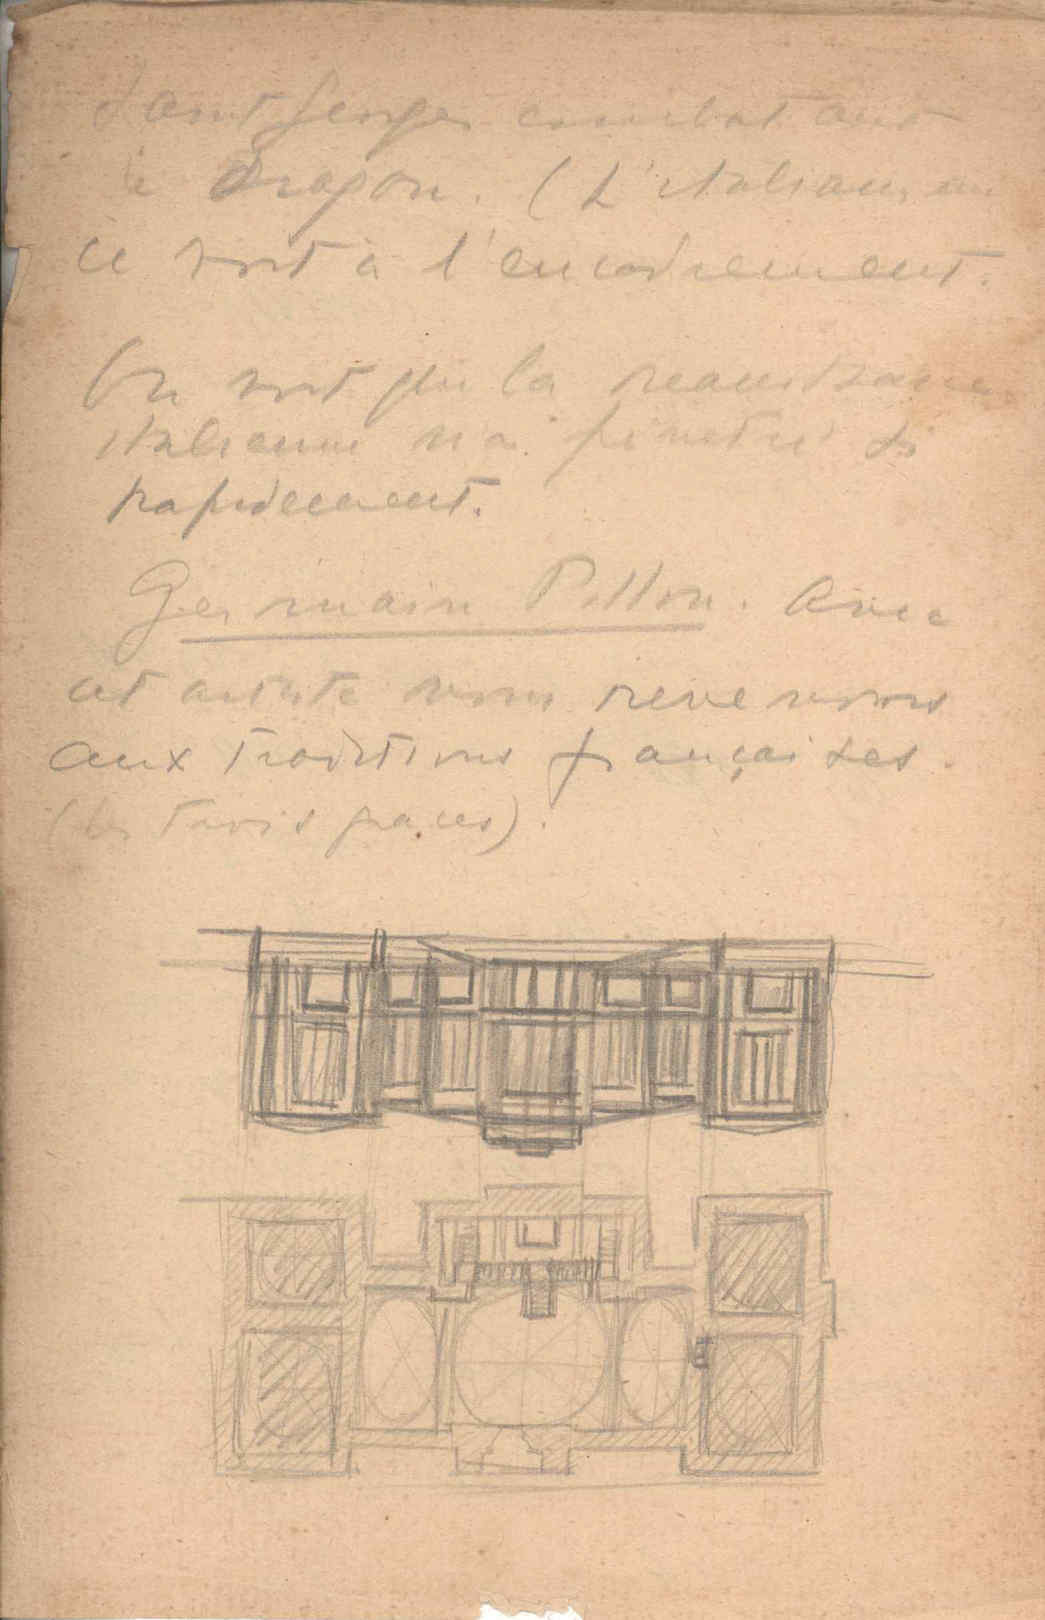 Saint Georges combattant
le Dragon. (L'italianisme
ce voit à l'encadrement.
On voit que la renaissance
italienne n'a pénétré si
rapidement.
Germain Pillon. Avec
cet artiste nous revenons
aux traditions françaises.
(les trois graces).